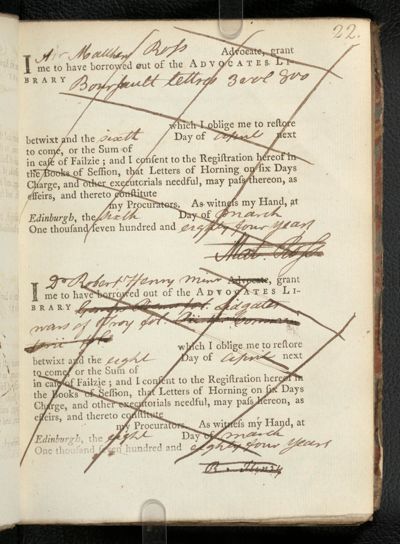 22.
I Mr Matthew Ross Advocate, grant
me to have borrowed out of the ADVOCATES LI-
BRARY letters 3 vol 8vo
which I oblige me to reſtore
betwixt and the sixth Day of April next
to come, or the Sum of
in caſe of Failzie ; and I conſent to the Regiſtration hereof in
the Books of Seſſion, that Letters of Horning on ſix Days
Charge, and other executorials needful, may paſs thereon, as
effeirs, and thereto conſtitute
my Procurators. As witneſs my Hand, at
Edinburgh, the sixth Day of March
One thouſand ſeven hundred and eighty four years
Mat. Ross
I Dr Robert Henry Minr Advocate, grant
me to have borrowed out of the ADVOCATES LI-
BRARY Lidgates
wars of Troy fol.
which I oblige me to reſtore
betwixt and the eight Day of April next
to come, or the Sum of
in caſe of Failzie ; and I conſent to the Regiſtration hereof in
the Books of Seſſion, that Letters of Horning on ſix Days
Charge, and other executorials needful, may paſs hereon, as
effeirs, and thereto conſtitute
my Procurators. As witneſs my Hand, at
Edinburgh, the eight Day of March
One thouſand ſeven hundred and eighty four years